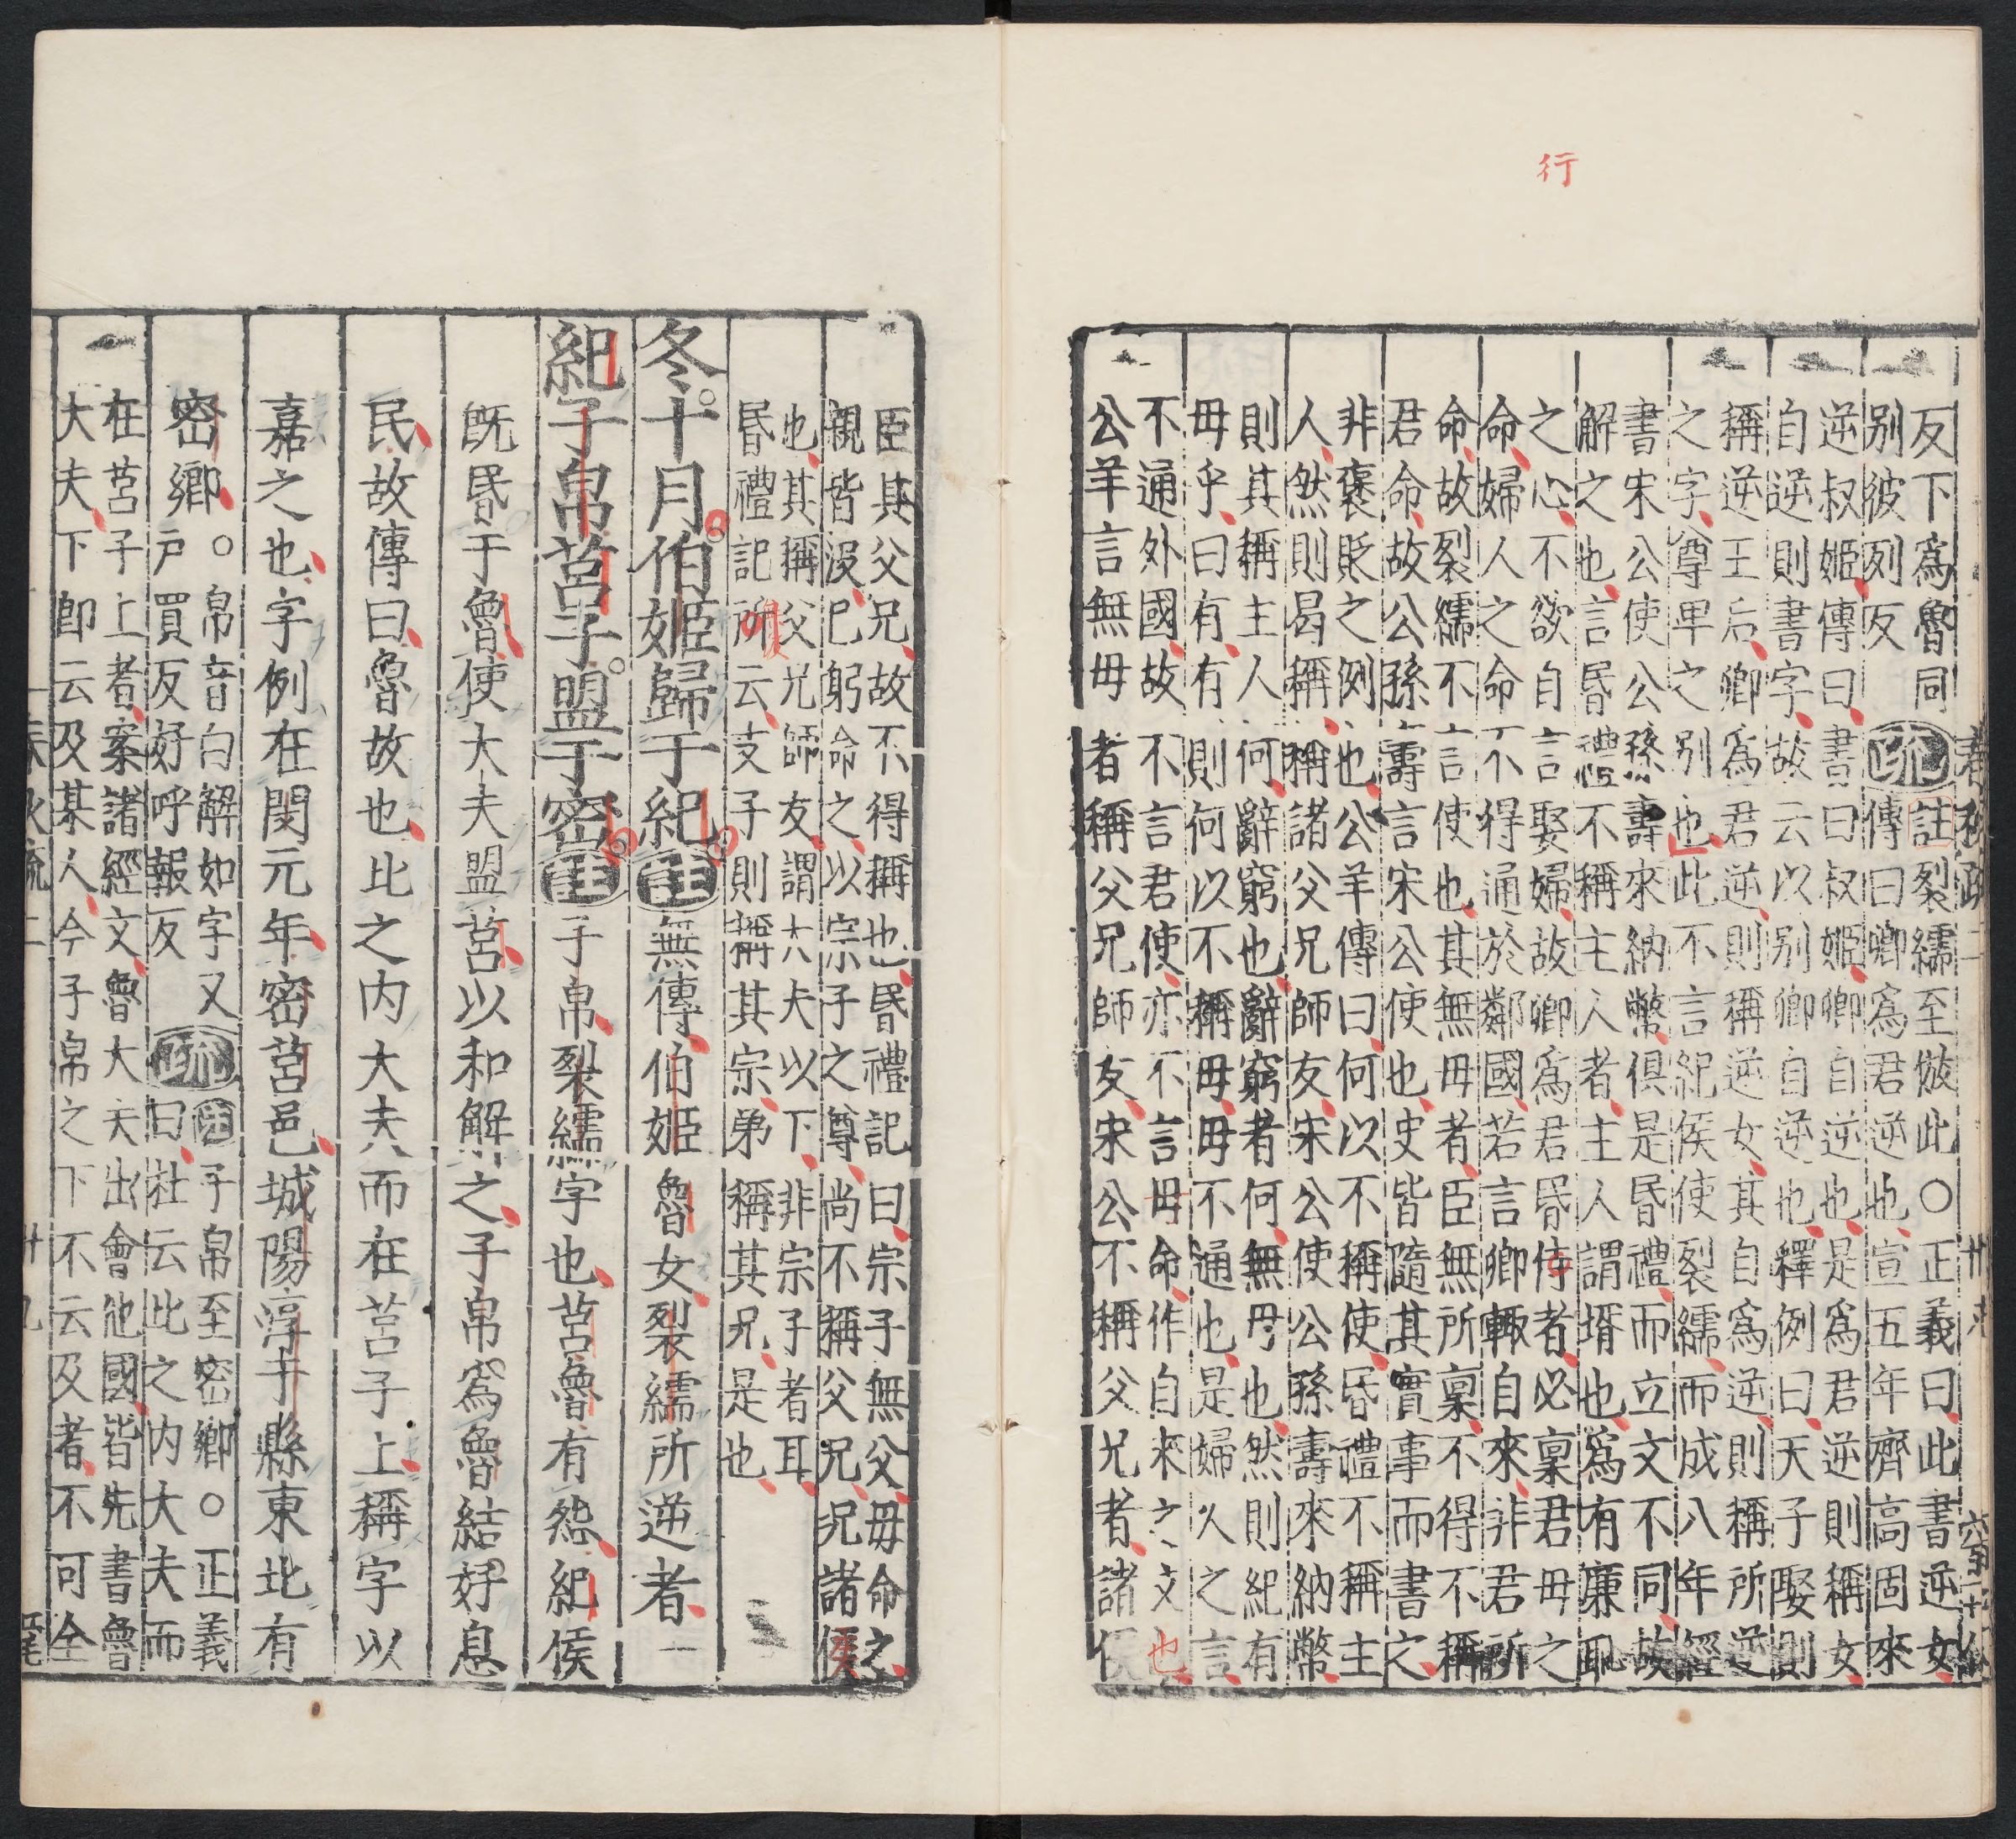 行
反下為魯同
別彼列反
疏
註裂繻至倣此○正義曰此書逆女
傳曰卿為君逆也宣五年齊高固來
逆叔姬傳曰書曰叔姬卿自逆也是為君逆則稱女
自逆則書字故云以別卿自逆也釋例曰天子娶則
稱逆王后卿為君逆則稱逆女其自為逆則稱所逆
之字尊卑之別也此不言紀侯使裂繻而成八年經
書宋公使公孫壽來納幣俱是昬禮而立文不同故
解之也言昬禮不稱主人者主人謂壻也為有廉恥
之心不欲自言娶婦故卿為君昬侍者必稟君毋之
命婦人之命不得通於鄰國若言卿輒自來非君所
命故裂繻不言使也其無毋者臣無所稟不得不稱
君命故公孫壽言宋公使也史皆隨其實事而書之
非褒貶之例也公羊傳曰何以不稱使昬禮不稱主
人然則曷稱稱諸父兄師友宋公使公孫壽來納幣
則其稱主人何辭窮也辭窮者何無毋也然則紀有
毋乎曰有有則何以不稱毋毋不通也是婦人之言
不通外國故不言君使亦不言毋命作自來之文也
公羊言無毋者稱父兄師友宋公不稱父兄者諸侯
臣其父兄故不得稱也昬禮記曰宗子無父毋命之
親皆沒已躬命之以宗子之尊尚不稱父兄況諸侯
也其稱父兄師友謂大夫以下非宗子者耳
昬禮記所云支子則稱其宗弟稱其兄是也
冬十月伯姬歸于紀註無傳伯姬魯女裂繻所逆者一
紀子帛莒子盟于密註子帛裂繻字也莒魯有怨紀侯
既昬于魯使大夫盟莒以和解之子帛為魯結好息
民故傳曰魯故也比之內大夫而在莒子上稱字以
嘉之也字例在閔元年密莒邑城陽淳于縣東北有
密鄉
○帛音白解如字又
戶買反好呼報反
疏
註子帛至密鄉○正義
曰杜云此之內大夫而
在莒子上者案諸經文魯大夫出會他國皆先書魯
大夫下即云及某人今子帛之下不云及者不可全